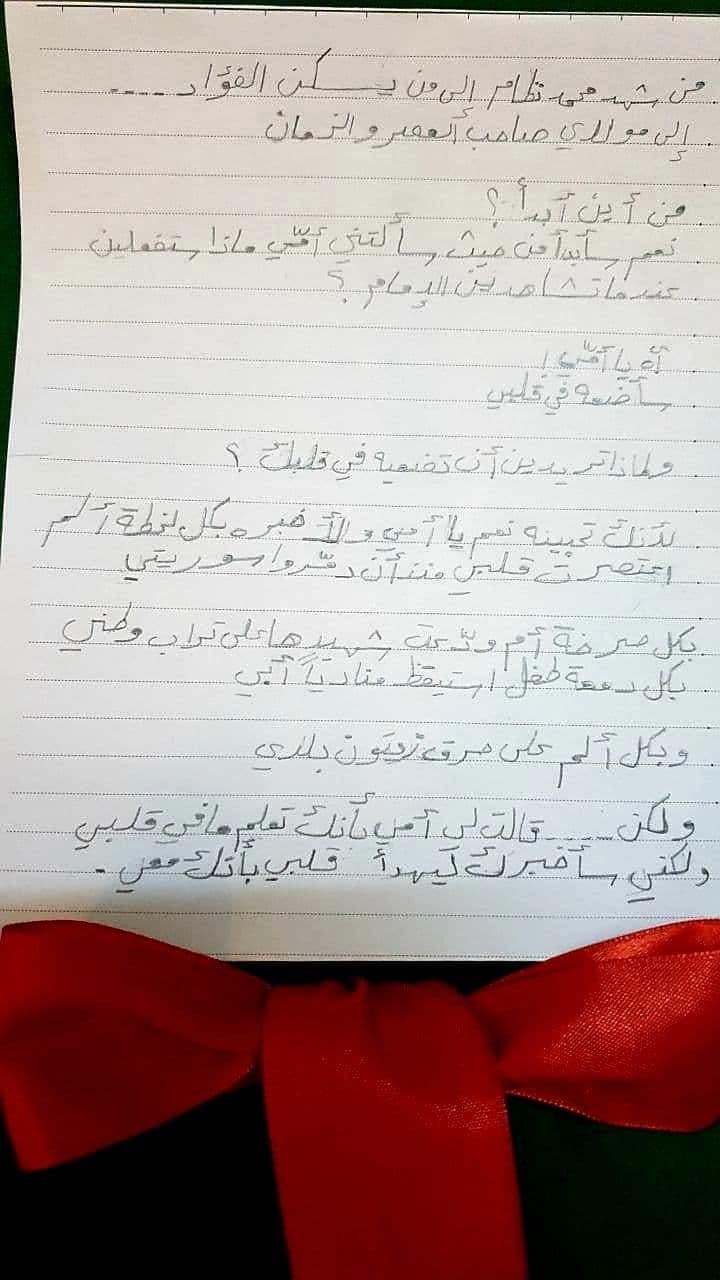 من شهد محمد نظام إلى من يسكن الفؤاد ....
إلى موالدي صاحب العصر والزمان
من أين أبدأ ؟
نعم سأبدأ من حيث سألتني أمّي ماذا ستفعلين
عندما تشاهدين الإمام ؟
آه يا أمّي !
سأضعه في قلبي
ولماذا تريدين أن تضعيه في قلبك ؟
لأنك تحبينه نعم يا أمي ولأخبره بكل لحظة ألم
اعتصرت قلبي منذ أن دمّروا سوريتي
بكل صرخة أم ودّعت شهيدها على تراب وطني
بكل دمعة طفل استيقظ منادياً أبي
وبكل ألم على حرق زيتون بلادي
ولكن .... قالت لي أمي بأنك تعلم ما في قلبي
ولكني سأخبرك ليهدأ قلبي بأنك معي .